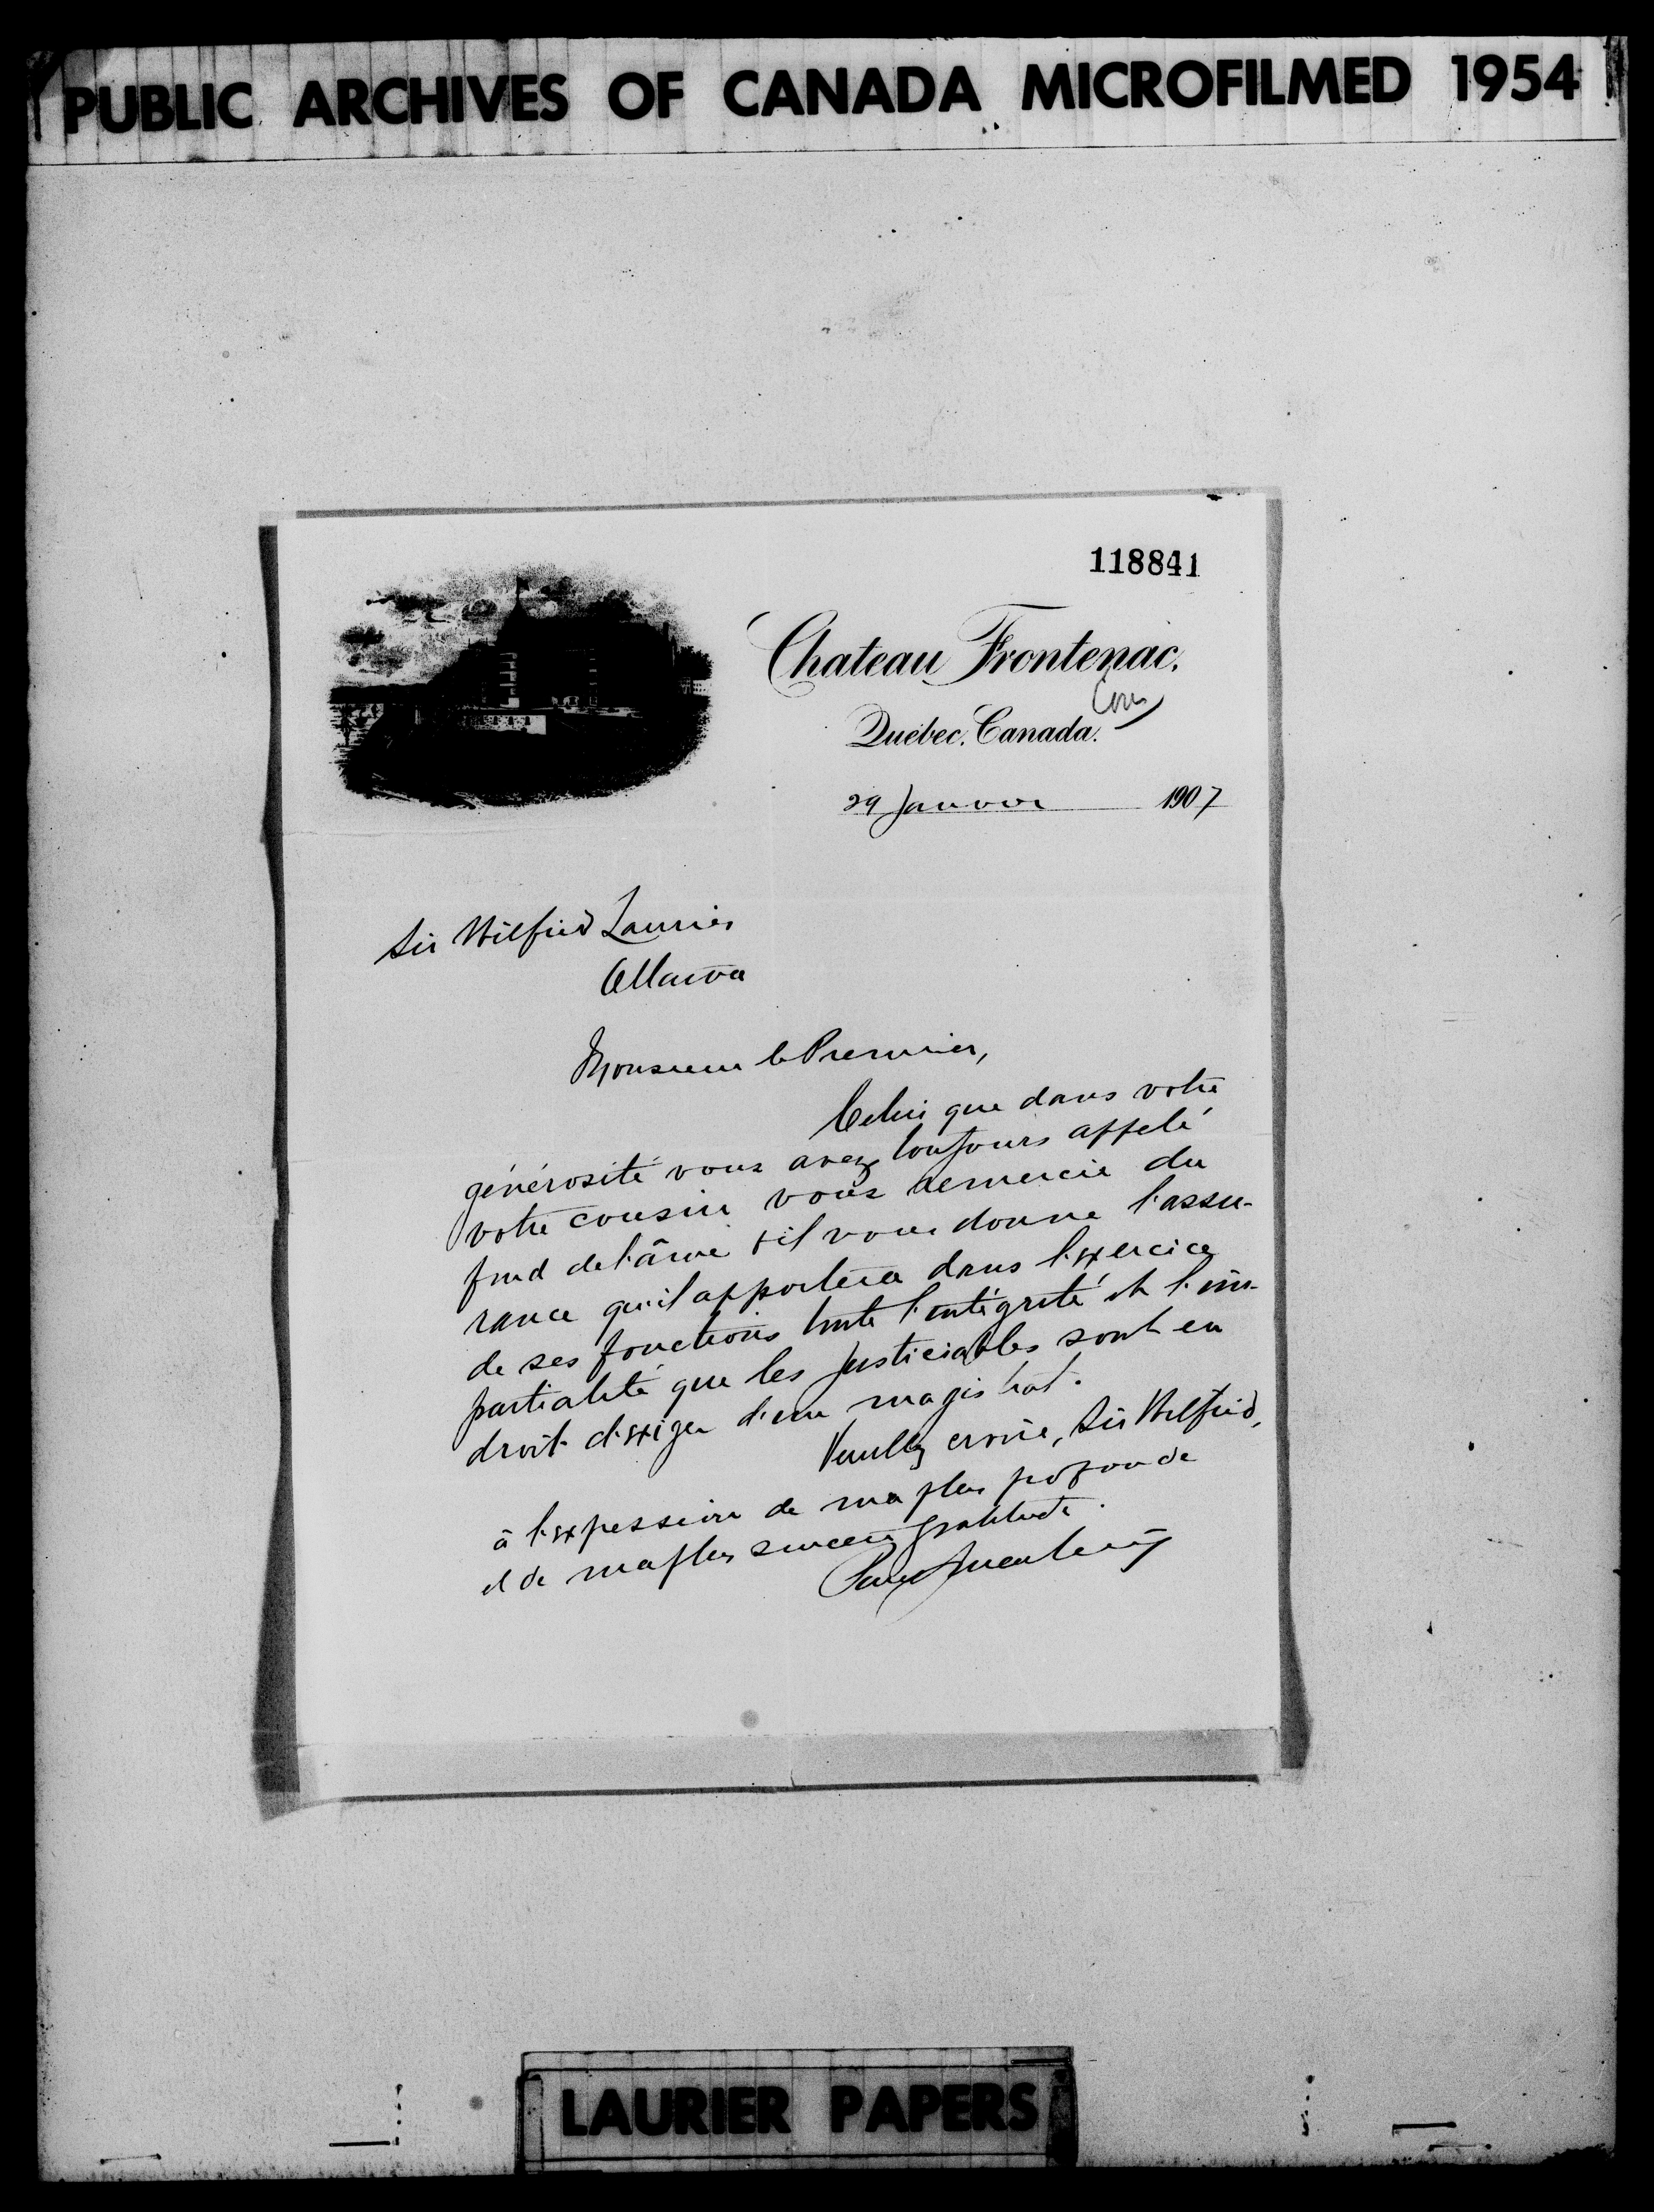 PUBLIC ARCHIVES OF CANADA MICROFILMED 1954
118841
Chateau Frontenac.
Québec. Canada.
29 Janvier 1907
Sir Wilfrid Laurier
Ottawa
Monsieur le Premier,
Celui que dans votre
générosité vous avez toujours appelé
votre cousin vous remercie du
fond de l'âme & il vous donne l'assu-
rance qu'il apportera dans l'exercice
de ses fonctions toute l'intégrité et l'im-
partialité que les justiciables sont en
droit d'exiger d'un magistrat.
Veuillez croire, Sir Wilfrid,
à l'expession de ma plus profonde
et de ma plus sincère gratitude.
LAURIER PAPERS